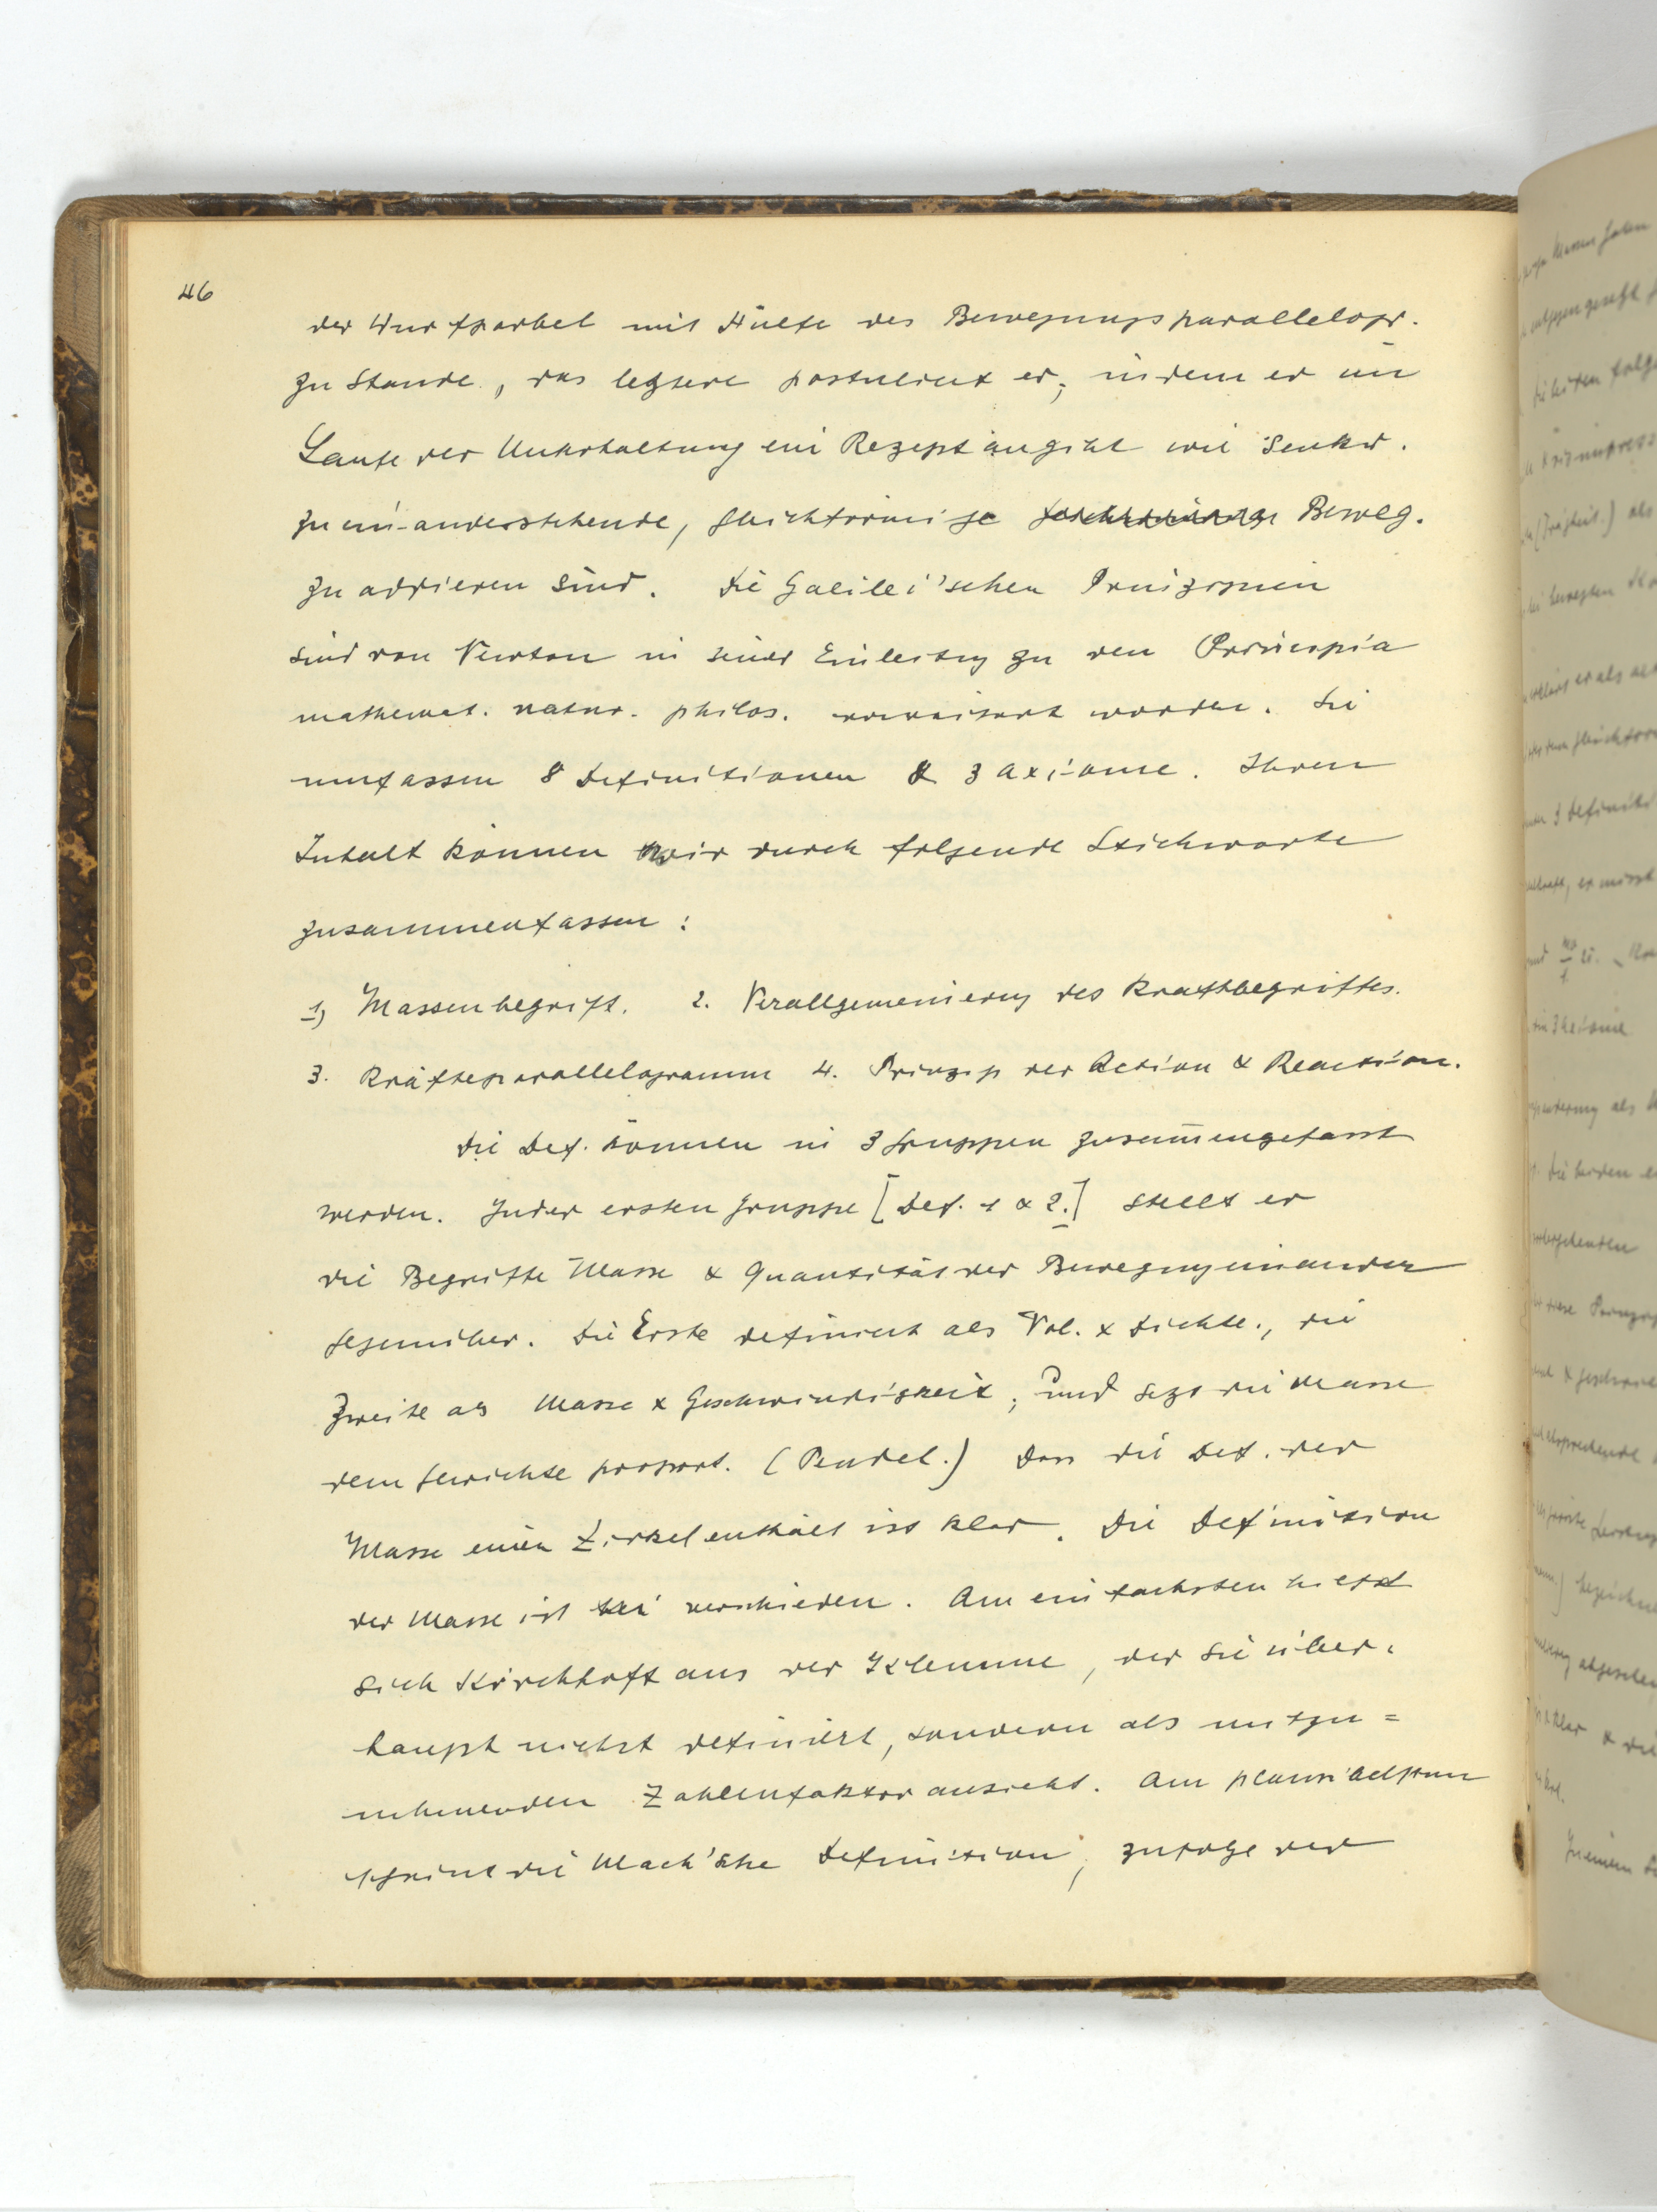 46
der Wurfparbel mit Hülfe des Bewegungsparallelogr.
zu Stande, das letztere postuliert er, indem er im
Laufe der Unterhaltung ein Rezept angibt wie senkr.
zu ein-anderstehende, gleichförmige Beweg.
zu addieren sind. Die Galilei'schen Prinzipien
sind von Newton in seiner Einleitung zu den Principia
mathemat. natur. philos. erweitert worden. Sie
umfassen 8 Definitionen & 3 Axiome. Ihren
Inhalt können wir durch folgende Stichworte
zusammenfassen:
1) Massenbegriff. 2. Verallgemeinerung des Kraftbegriffes.
3. Kräfteparallelogramm 4. Prinzip der Action & Reaction.
Die Def. können in 3 Gruppen zusam̅engefasst
werden. In der ersten Gruppe [Def. 1 & 2.] stellt er
die Begriffe Masse & Quantität der Bewegung einander
gegenüber. Die Erste definiert als Vol. x Dichte., die
Zweite als Masse x Geschwindigkeit, und sezt die Masse
dem Gewichte proport. (Pendel.) Dass die Def. der
Masse einen Zirkel enthält ist klar. Die Definition
der Masse ist verschieden. Am einfachsten hielft
sich Kirchhoff aus der Klemme, der sie über-
haupt nicht definiert, sondern als mitzu=
nehmenden Zahlenfaktor ansieht. Am plausibelsten
scheint die Mach'sche Definition, zufolge der